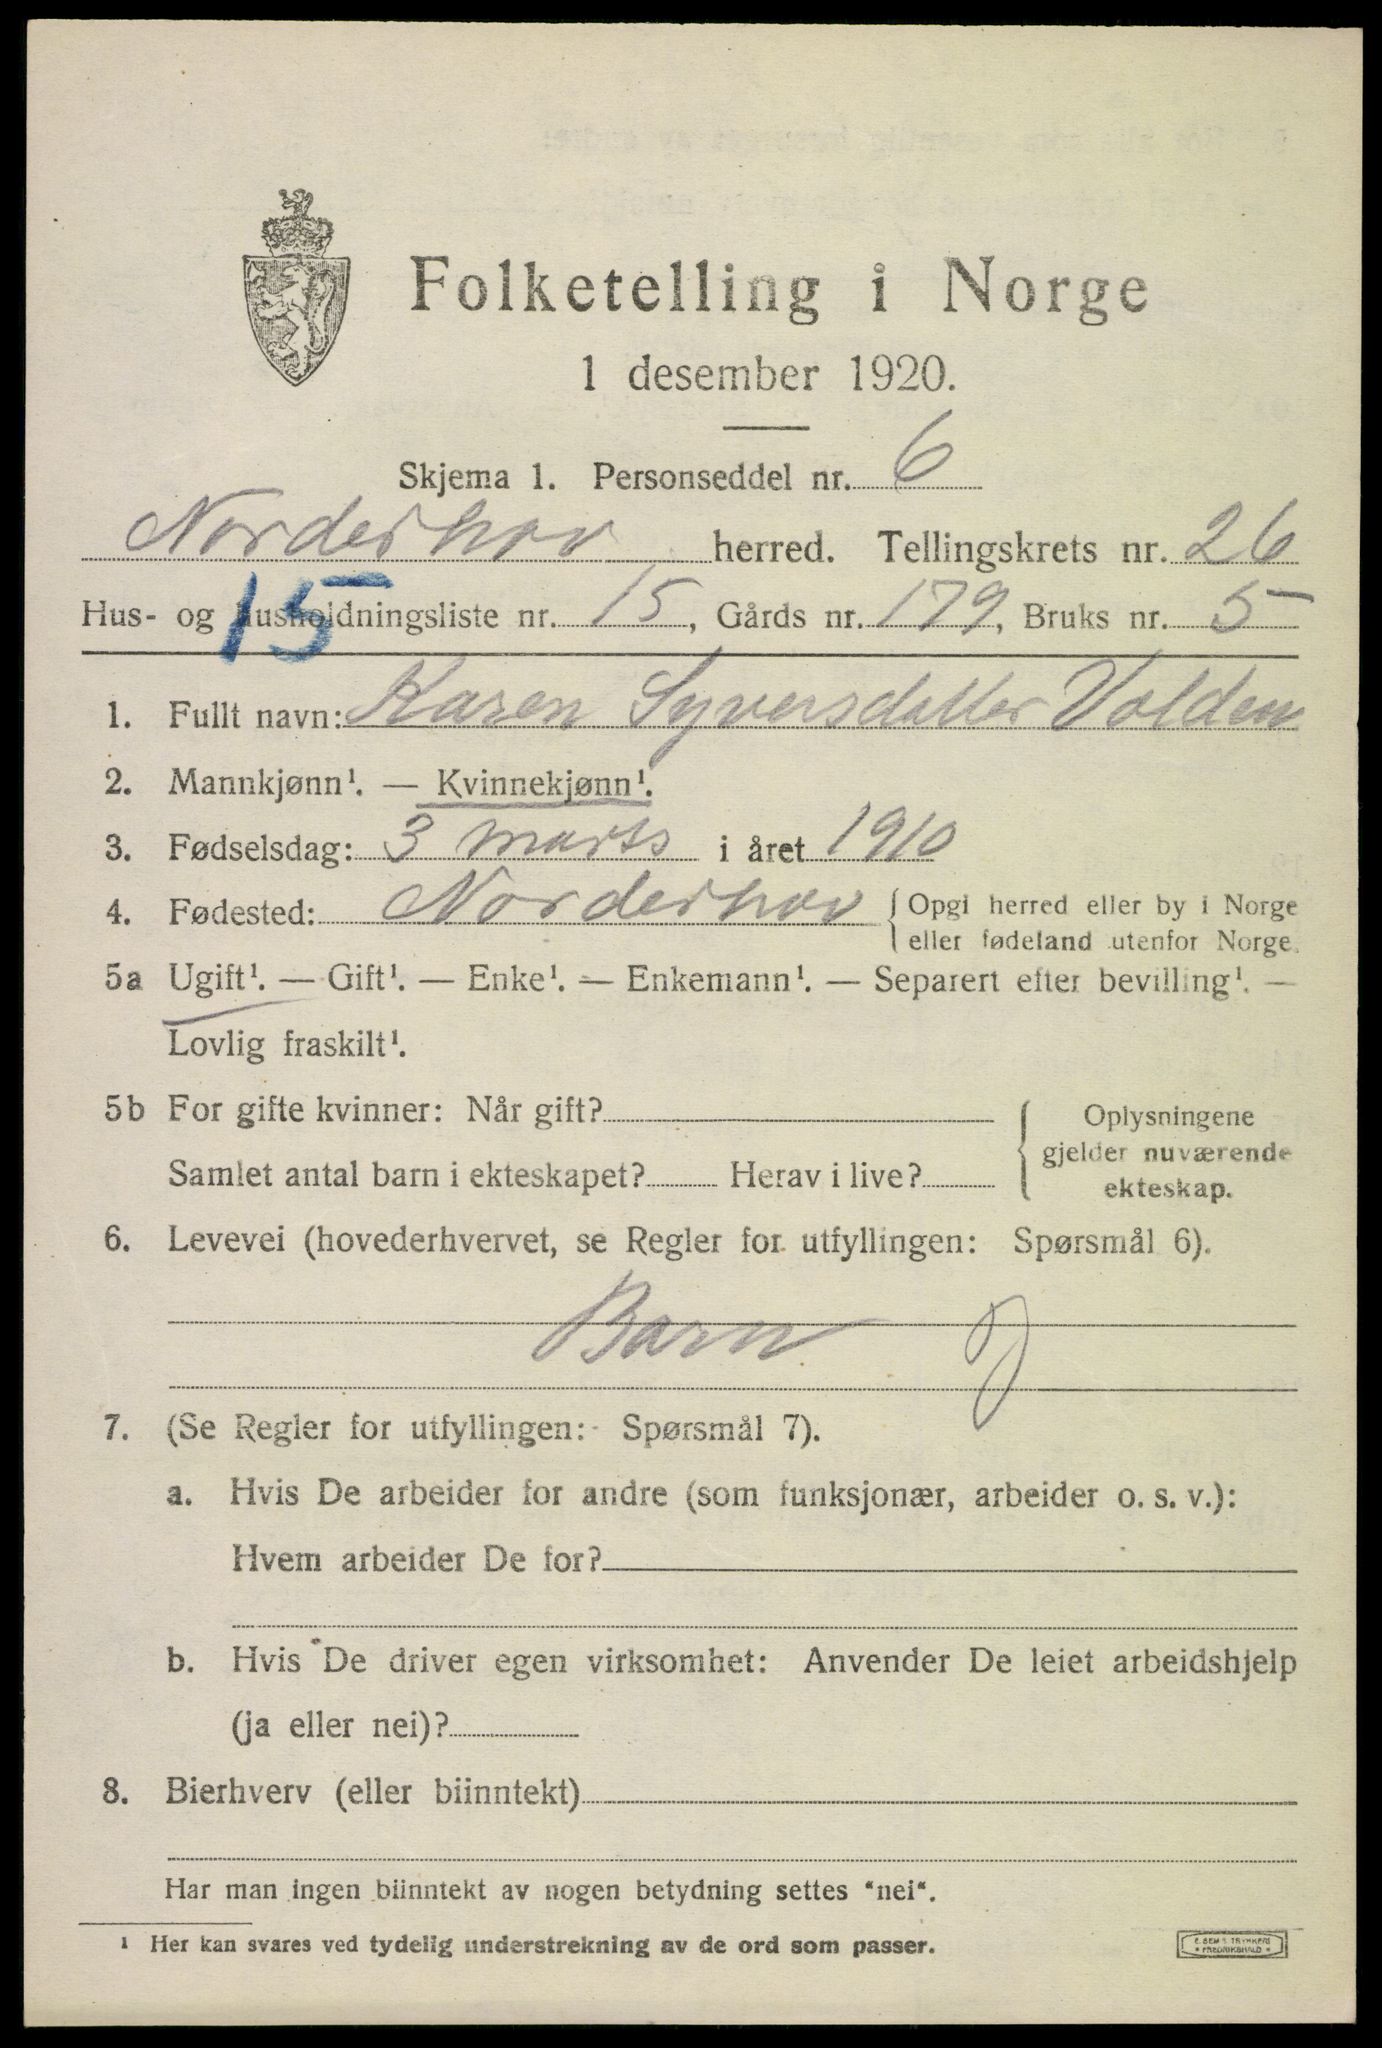 Folketelling i Norge
1 desember 1920.
Skjema 1. Personseddel nr. 6
Norderhov herred. Tellingskrets nr. 26
Hus- og husholdningsliste nr. 15, Gårds nr. 179, Bruks nr. 5
15
1. Fullt navn: Karen Syversdatter Volden
2. Mannkjønn¹. — Kvinnekjønn¹.
3. Fødselsdag: 3 marts i året 1910
4. Fødested: Norderhov { Opgi herred eller by i Norge
eller fødeland utenfor Norge.
5a Ugift¹. — Gift¹. — Enke¹. — Enkemann¹. — Separert efter bevilling¹. —
Lovlig fraskilt¹.
5b For gifte kvinner: Når gift? { Oplysningene
gjelder nuværende
Samlet antal barn i ekteskapet? Herav i live?
ekteskap.
6. Levevei (hovederhvervet, se Regler for utfyllingen: Spørsmål 6).
Barn J
7. (Se Regler for utfyllingen: Spørsmål 7).
a. Hvis De arbeider for andre (som funksjonær, arbeider o. s. v.):
Hvem arbeider De for?
b. Hvis De driver egen virksomhet: Anvender De leiet arbeidshjelp
(ja eller nei)?
8. Bierhverv (eller biinntekt)
Har man ingen biinntekt av nogen betydning settes "nei".
¹ Her kan svares ved tydelig understrekning av de ord som passer.
E. SEM'S TRYKKERI
FREDRIKSHALD